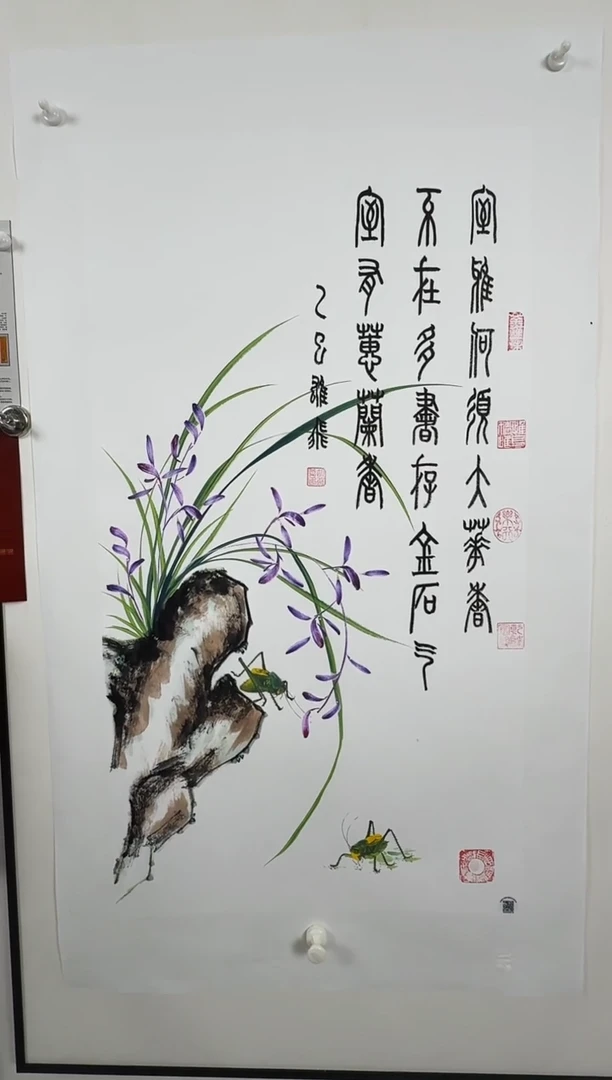 室雅何須大華香
不在多書存金石气
室有蕙蘭香
乙巳